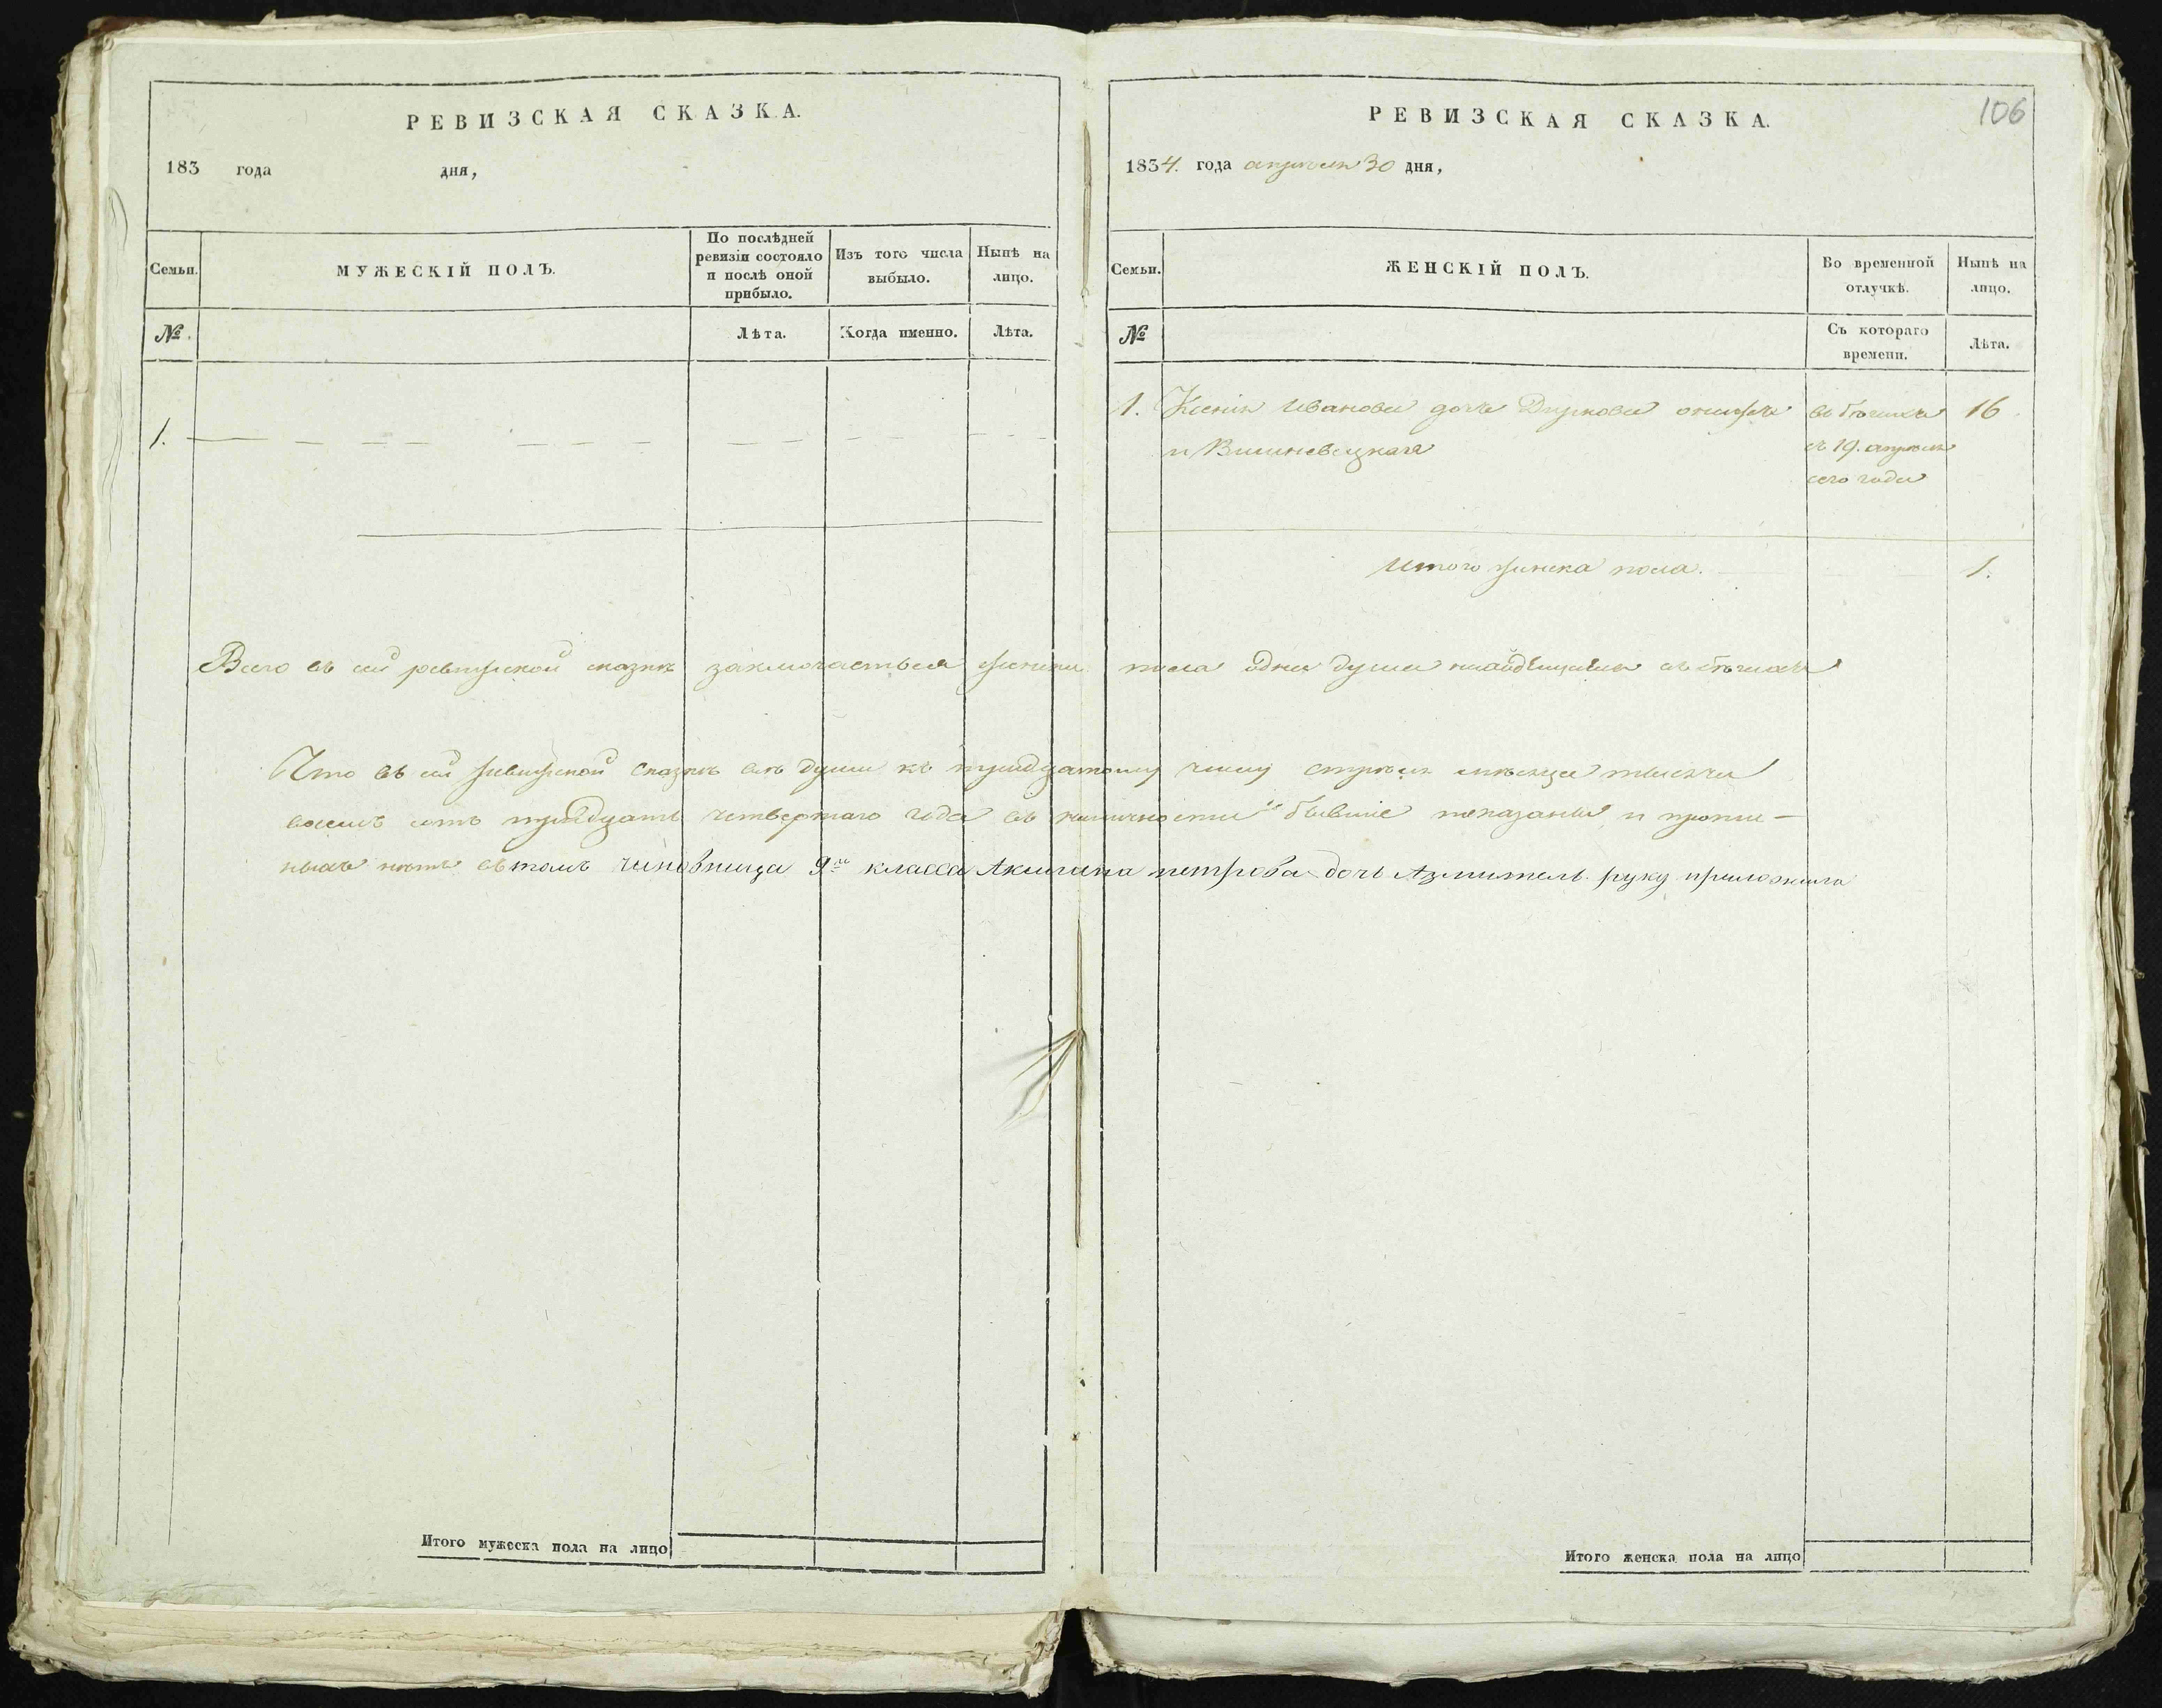 РЕВИЗСКАЯ СКАЗКА.
183 года дня,
Семьи.
МУЖЕСКІЙ ПОЛЪ.
По послѣдней
ревизіи состояло
и послѣ оной
прибыло.
Изъ того числа
выбыло.
Нынѣ на
лицо.
№
Лѣта.
Когда именно.
Лѣта.
1.
Итого мужеска пола на лицо
106
РЕВИЗСКАЯ СКАЗКА.
1834. года апрѣля 30 дня,
Семьи.
ЖЕНСКІЙ ПОЛЪ.
Во временной
отлучкѣ.
Нынѣ на
лицо.
№
Съ котораго
времени.
Лѣта.
1. Ксенія Иванова дочь онажъ въ бѣгахъ 16
и съ 19. апрѣля
сего года
Итого женска пола. 1.
Всего въ сей ревизской сказкѣ заключается женска пола одна душа въ бѣгахъ
Что въ сей ревизской сказкѣ всѣ души къ тридцатому числу апрѣля мѣсяца тысяча
восемь сотъ тридцать четвертаго года въ наличности бывшіе показаны и пропи-
ныхъ нѣтъ въ томъ чиновница 9го класса петрова дочь руку приложила
Итого женска пола на лицо